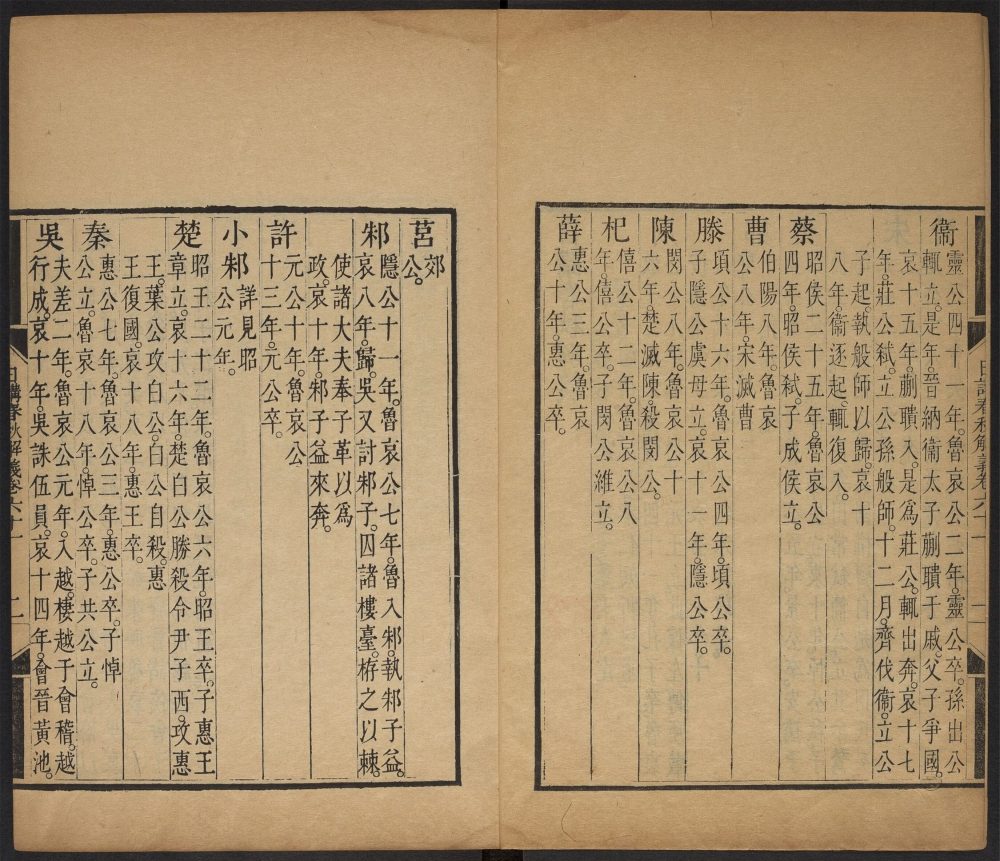 日講春秋解義卷六十一
衞
靈公四十一年。魯哀公二年。靈公卒。孫出公
輒立。是年。晉納衞太子蒯聵于戚。父子爭國。
哀十五年。蒯聵入。是爲莊公。輒出奔。哀十七
年。莊公弒。立公孫般師。十二月。齊伐衞。立公
子起。執般師以歸。哀十
八年。衞逐起。輒復入。
蔡
昭侯二十五年。魯哀公
四年。昭侯弒。子成侯立。
曹
伯陽八年。魯哀
公八年。宋滅曹
滕
頃公十六年。魯哀公四年。頃公卒。
子隱公虞母立。哀十一年。隱公卒。
陳
閔公八年。魯哀公十
六年。楚滅陳。殺閔公。
杞
僖公十二年。魯哀公八
年。僖公卒。子閔公維立。
薛
惠公三年。魯哀
公十年。惠公卒。
莒
郊
公。
邾
隱公十一年。魯哀公七年。魯入邾。執邾子益。
哀八年。歸。吳又討邾子。囚諸樓臺。栫之以棘。
使諸大夫奉子革以爲
政。哀十年。邾子益來奔。
許
元公十年。魯哀公
十三年。元公卒。
小邾
詳見昭
公元年。
楚
昭王二十二年。魯哀公六年。昭王卒。子惠王
章立。哀十六年。楚白公勝殺令尹子西。攻惠
王。葉公攻白公。白公自殺。惠
王復國。哀十八年。惠王卒。
秦
惠公七年。魯哀公三年。惠公卒。子悼
公立。魯哀十八年。悼公卒。子共公立。
吳
夫差二年。魯哀公元年。入越。棲越于會稽。越
行成。哀十年。吳誅伍員。哀十四年。會晉黃池。
日講春秋解義卷六十一 二